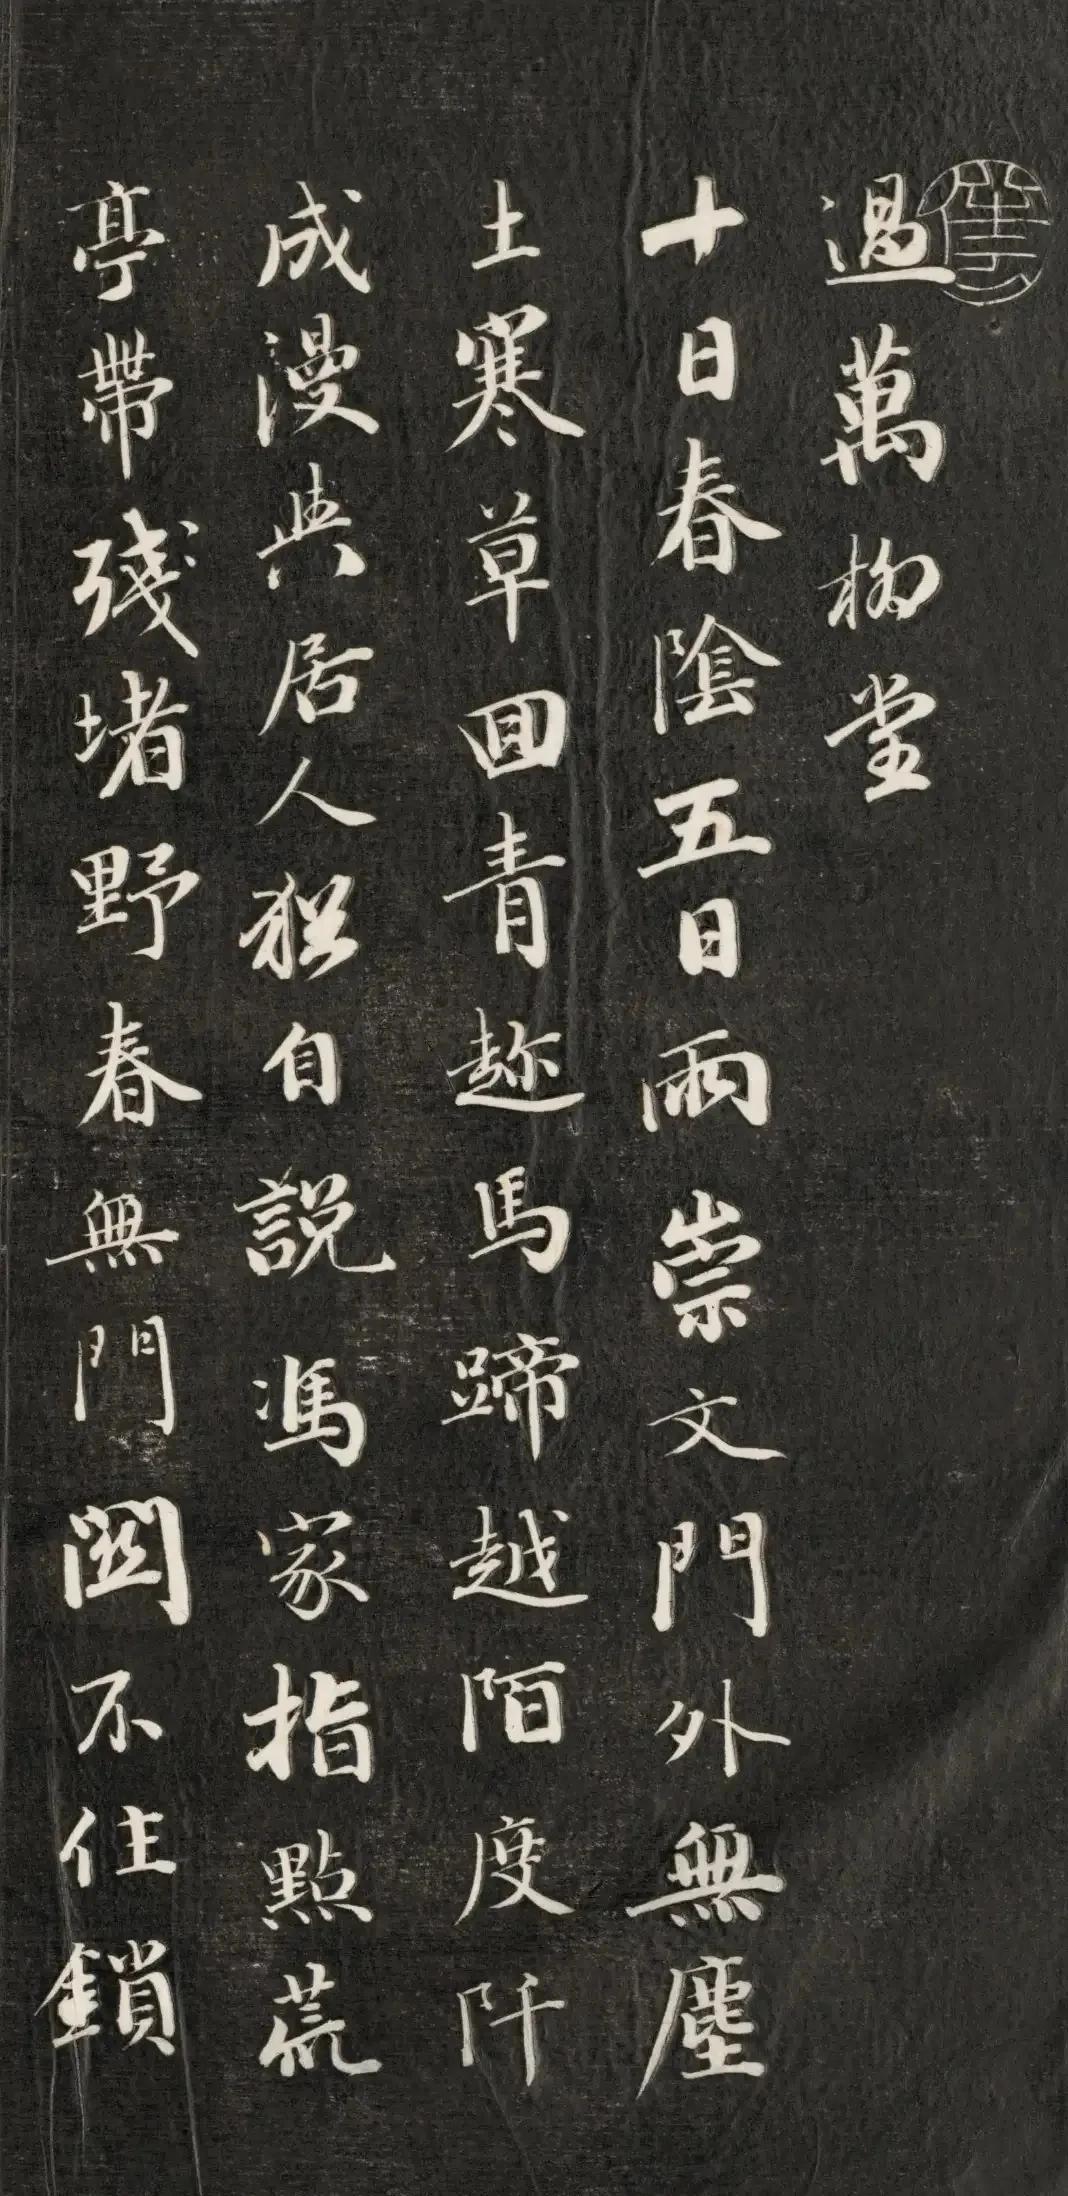 過萬柳堂
十日春陰五日雨崇文門外無塵
土寒草囬青趂馬蹄越陌度阡
成漫與居人猶自說馮家指點荒
亭帶殘堵野春無門關不住鎖